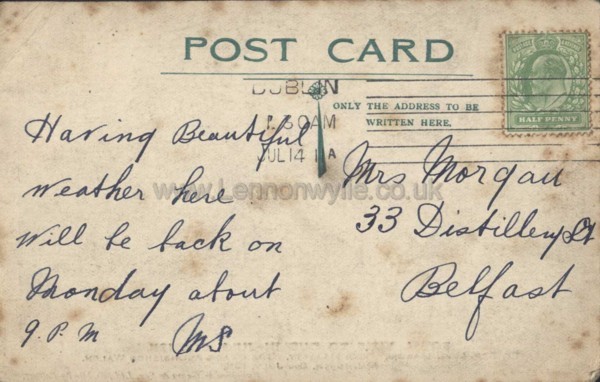 POST CARD
DUBLIN
1.30AM
JUL 14 11A
ONLY THE ADDRESS TO BE
WRITTEN HERE.
HALF PENNY
Having Beautiful
Weather here
Will be back on
Monday about
9. P. M MS
Mrs Morgan
33 Distillery St
Belfast
www.Lennonwylie.co.uk